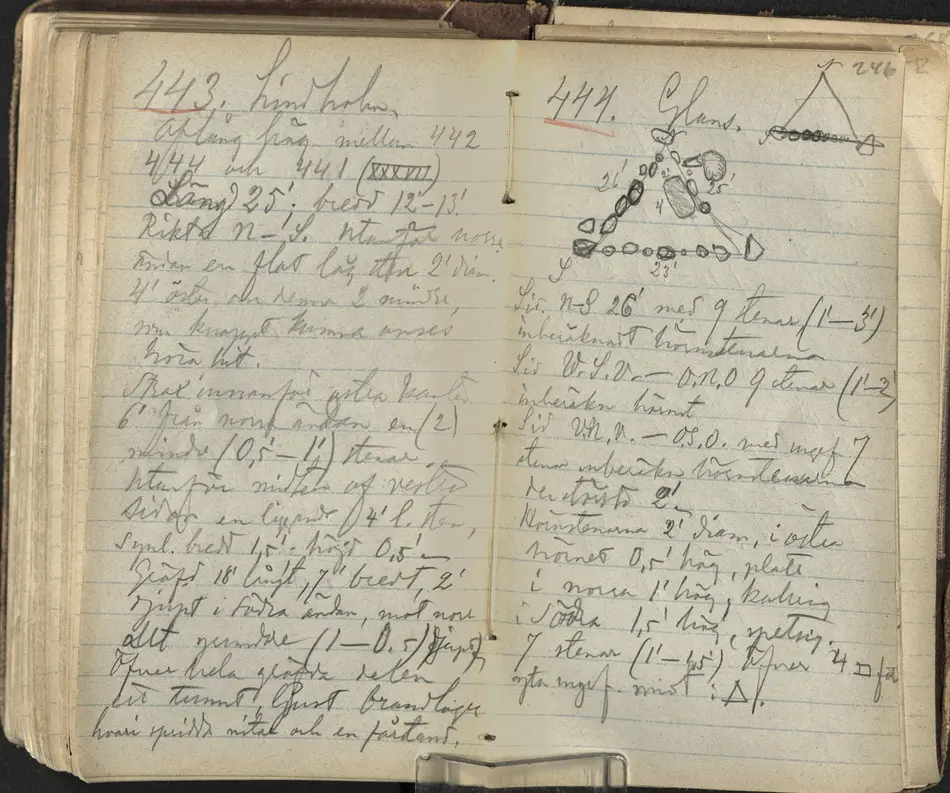 443. Lindholm.
Aflång fråg. mellan 442
4/44 och 441 (XXXVII)
Läng) 25'; bredd 12-13'
Rikt N-S. Utanför norra
ändan en flat låg sten 2' diam.
4' öster om denna 2 mindre,
som knappt kunna anses
höra hit.
Strax innanför östra kanten
6' från norra ändan en (2)
mindre (0,5-1') stenar.
Utanför midten af vestra
sidan en liggande (4' l. sten,
synl. bredd 1,5' - högd 0,5'
Gräfd 18' långt, 7' bredt, 2'
djupt i södra ändan, mot norr
allt grundare (1-0.5) djupt)
Öfver hela gräfda delen
ett tunnt, ljust brandlager
hvari spridda nitar och en fårtand.
246 2
444. Glans.
N
26'
25'
4'
2'
23'
S
Sid. N-S 26' med 9 stenar (1'-3')
inberäknadt hörnstenarna
Sid V.S.V. - O.N.O 9 stenar (1'-2')
inberäkn hörnst
Sid V.N.V. - O.S.O. med ungef 7
stenar inberäkn hörnstenarna
den största 2'
Hörnstenarna 2' diam, i östra
hörnet 0,5' hög, platt
i norra 1' hög, kullrig
i södra 1,5' hög, spetsig.
7 stenar (1'-1,5') öfver 4 □ fot
yta ungef. midt i △.